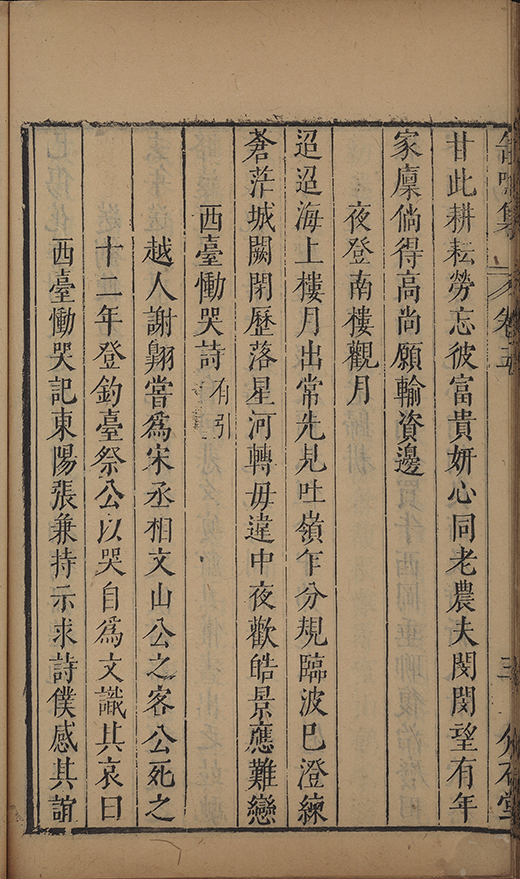 甘此耕耘勞忘彼富貴妍心同老農夫閔閔望有年
家廩倘得高尚願輸資邊
夜登南樓觀月
迢迢海上樓月出常先見吐嶺乍分規臨波巳澄練
蒼茫城闕閉歷落星河轉毋違中夜歡皓景應難戀
西臺慟哭詩有引
越人謝翺嘗爲宋丞相文山公之客公死之
十二年登釣臺祭公以哭自爲文識其哀曰
西臺慟哭記東陽張兼持示求詩僕感其誼